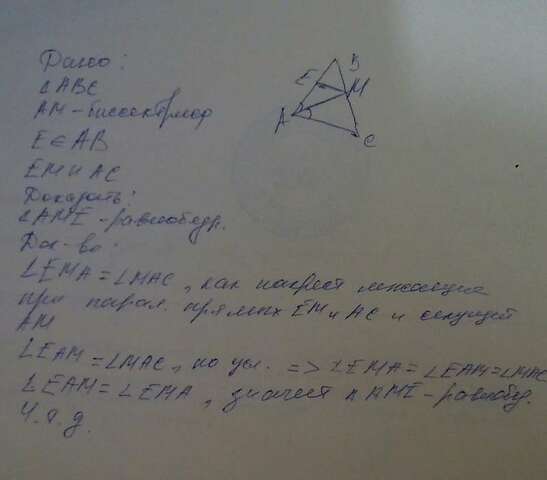 Дано:
△ABC
AM - биссектриса
E ∈ AB
EM || AC
Доказать:
△AME - равнобедр.
Док-во:
∠EMA = ∠MAC, как накрест лежащие
при парал. прямых EM и AC и секущей
AM
∠EAM = ∠MAC, по усл. => ∠EMA = ∠EAM = ∠MAC
∠EAM = ∠EMA, значит △AME - равнобед.
Ч.т.д.
B
E
M
A
C